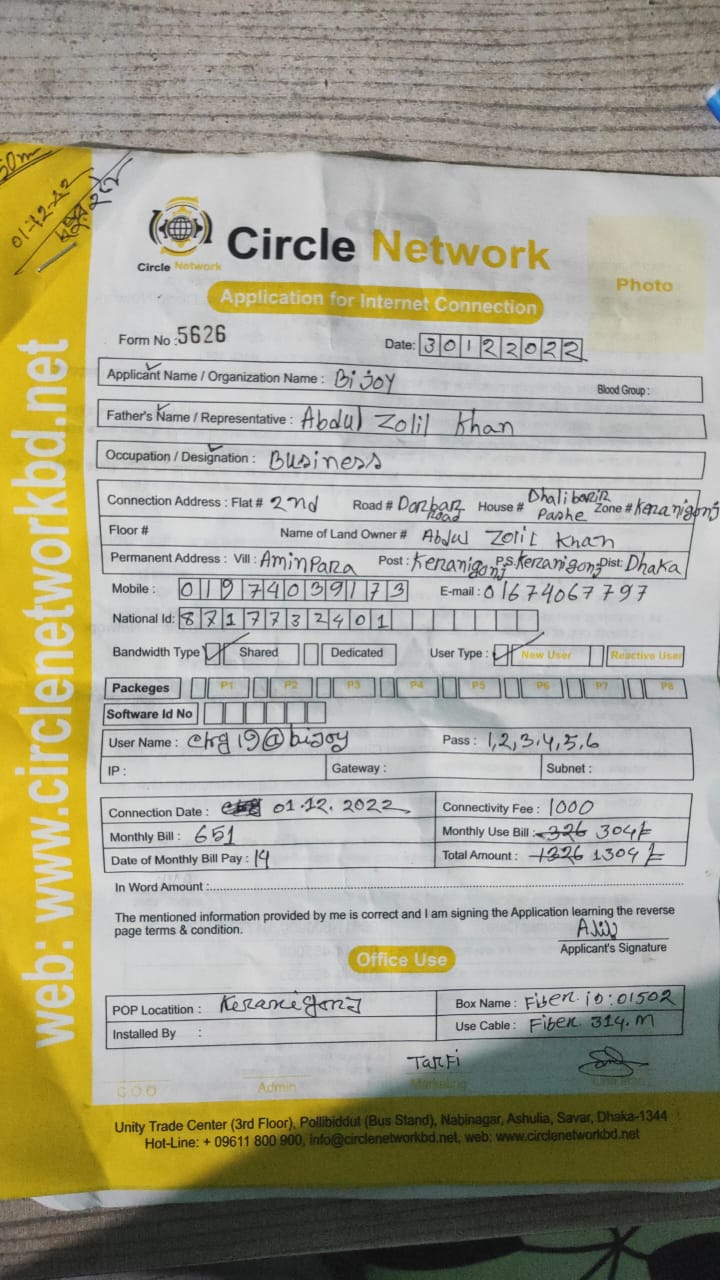 50m
01-12-22
Circle Network
Circle Network
Application for Internet Connection
Photo
web: www.circlenetworkbd.net
Form No :5626
Date: 30122022
Applicant Name / Organization Name : Bijoy Blood Group :
Father's Name / Representative : Abdul Zolil Khan
Occupation / Designation : Business
Connection Address : Flat # 2nd Road # Dorbar Road House # Dhalibarir Pashe Zone # Keranigonj
Floor # Name of Land Owner # Abdul Zolil Khan
Permanent Address : Vill : Aminpara Post : Keranigonj P.S. Keranigonj Dist: Dhaka
Mobile : 01974039173 E-mail : 01674067797
National Id: 8717732401
Bandwidth Type Shared Dedicated User Type : New User Reactive User
Packeges P1 P2 P3 P4 P5 P6 P7 P8
Software Id No
User Name : ckg19@bijoy Pass : 1,2,3,4,5,6
IP : Gateway : Subnet :
Connection Date : 01.12.2022 Connectivity Fee : 1000
Monthly Bill : 651 Monthly Use Bill : 326 304/-
Date of Monthly Bill Pay : 14 Total Amount : 1326 1304/-
In Word Amount :
The mentioned information provided by me is correct and I am signing the Application learning the reverse
page terms & condition.
Applicant's Signature
Office Use
POP Locatition : Keranigonj Box Name : Fiber. iD:01502
Installed By : Use Cable : Fiber. 314.m
Tarfi
C.O.O Admin Marketing
Unity Trade Center (3rd Floor), Pollibiddut (Bus Stand), Nabinagar, Ashulia, Savar, Dhaka-1344
Hot-Line: + 09611 800 900, info@circlenetworkbd.net, web: www.circlenetworkbd.net